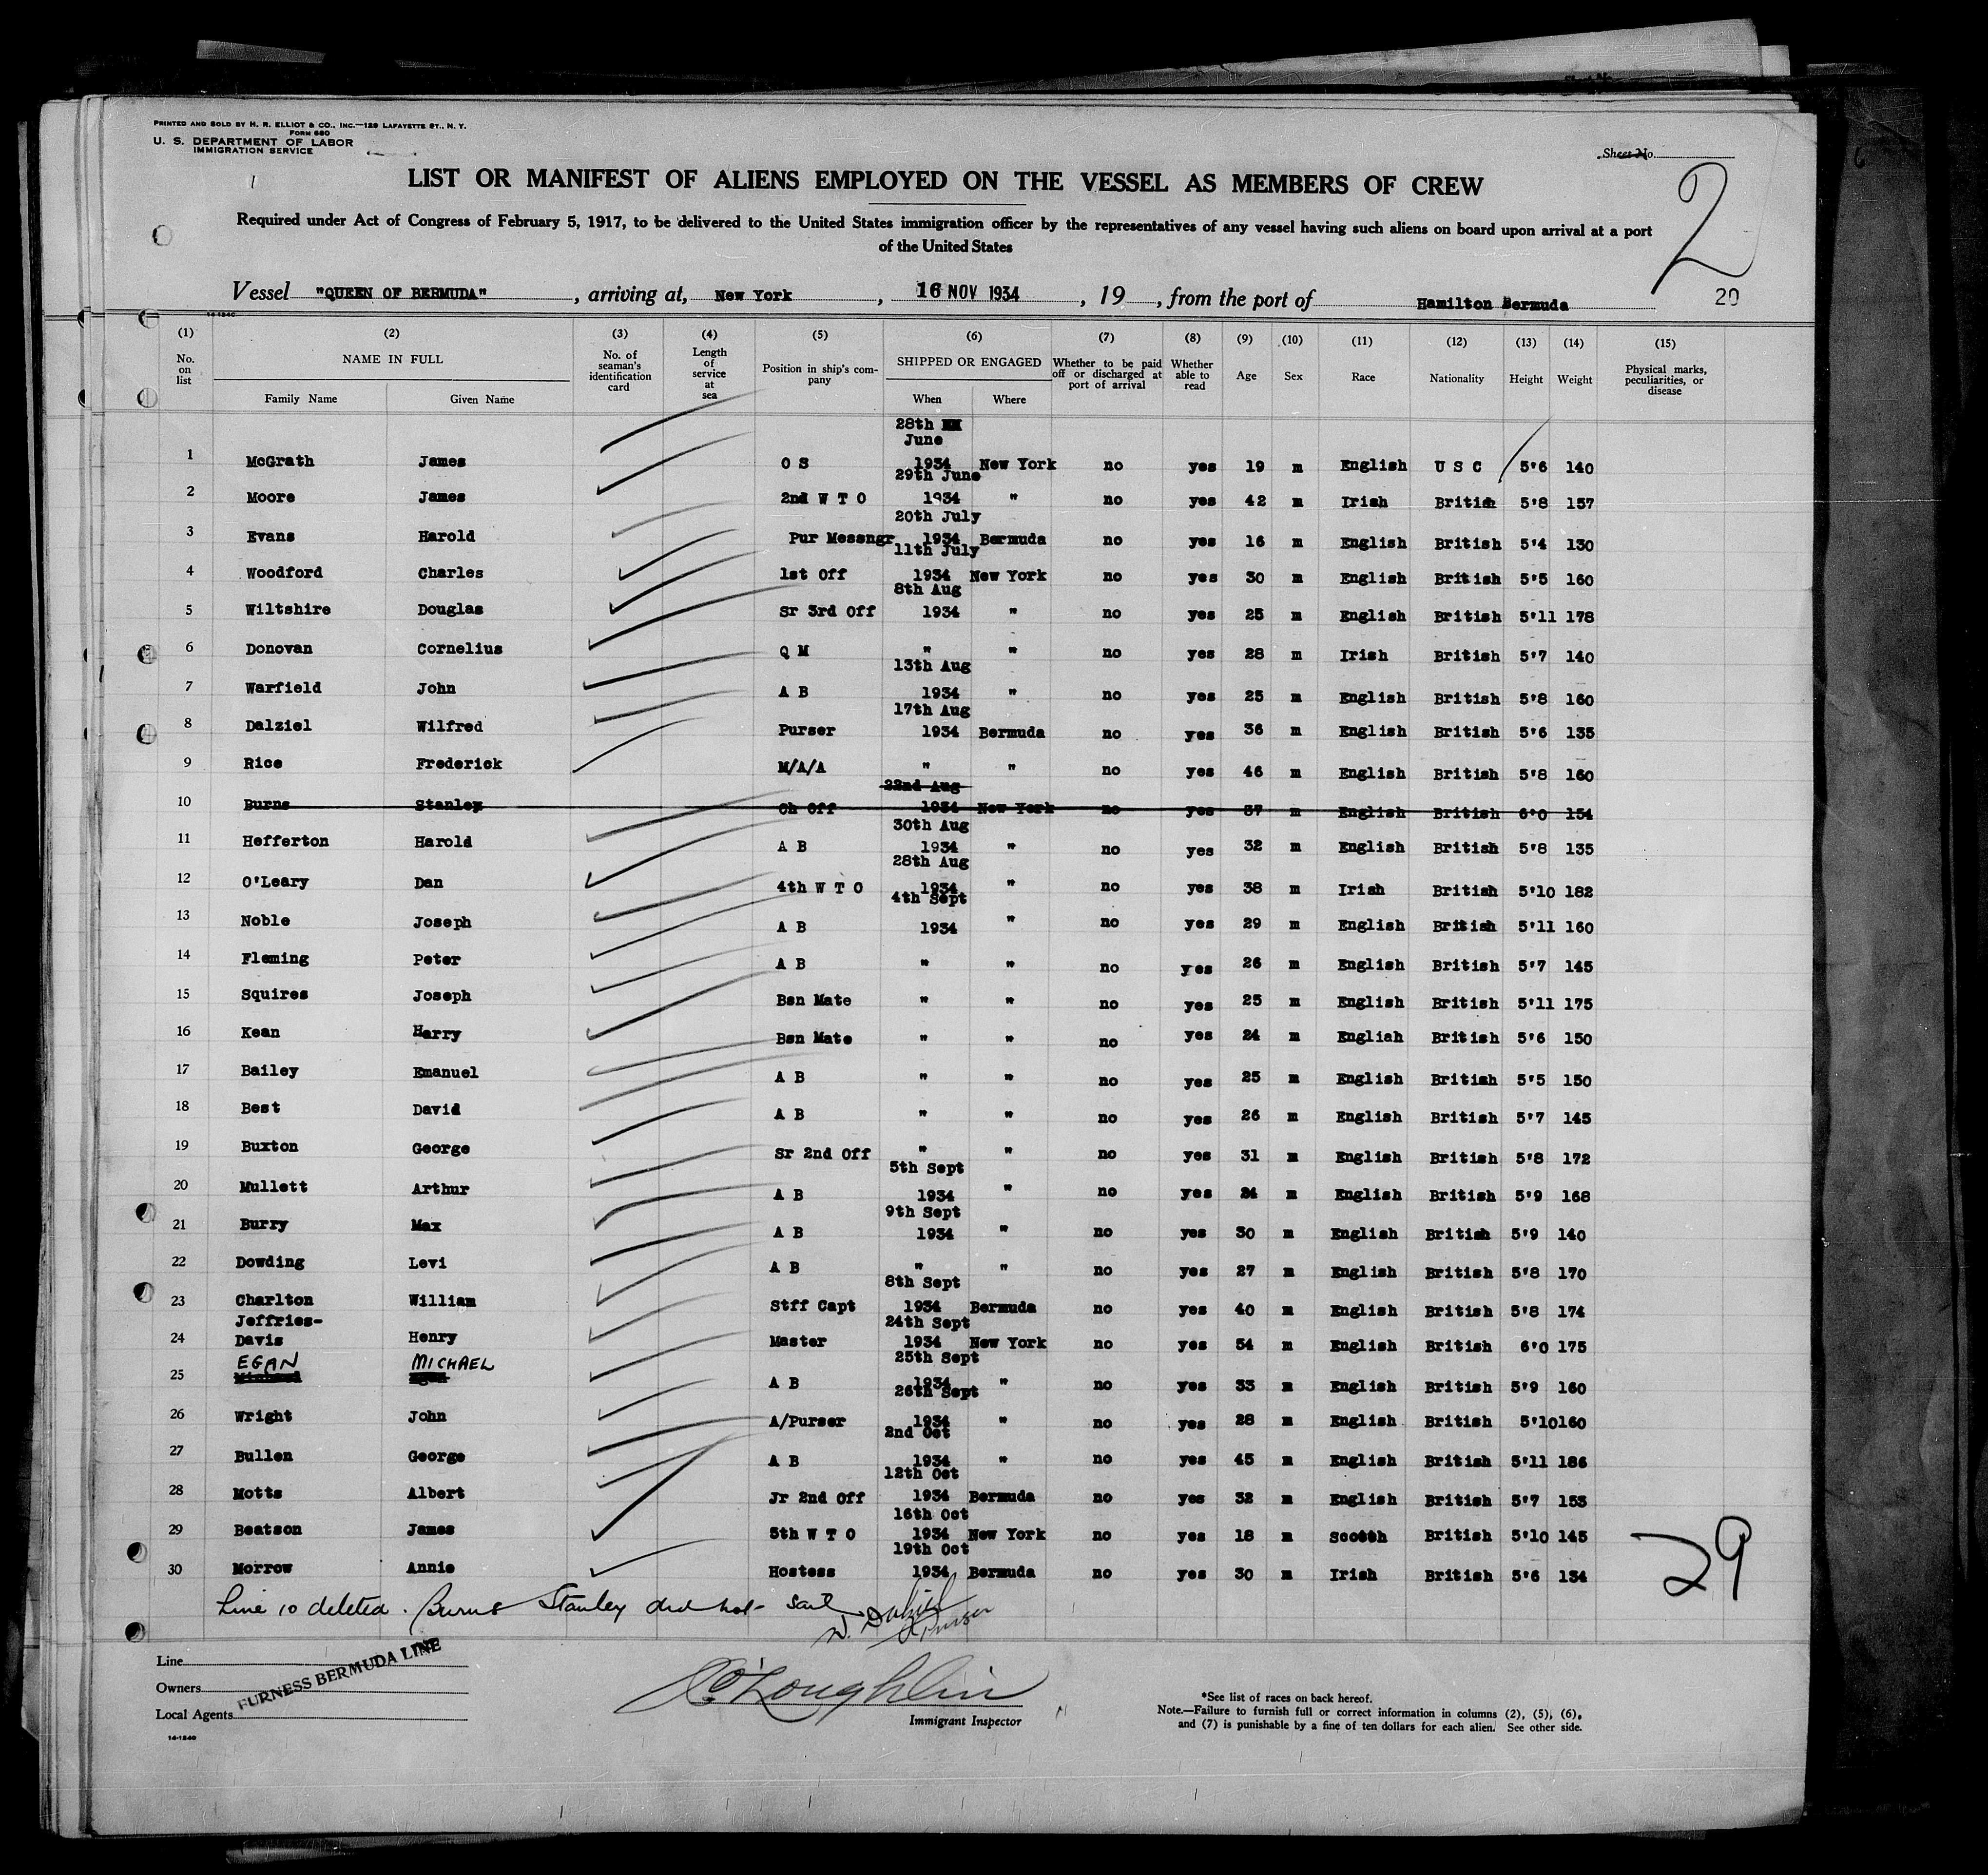 PRINTED AND SOLD BY H. R. ELLIOT & CO., INC.—129 LAFAYETTE ST., N. Y.
FORM 680
U. S. DEPARTMENT OF LABOR
IMMIGRATION SERVICE
Sheet No.
2
LIST OR MANIFEST OF ALIENS EMPLOYED ON THE VESSEL AS MEMBERS OF CREW
Required under Act of Congress of February 5, 1917, to be delivered to the United States immigration officer by the representatives of any vessel having such aliens on board upon arrival at a port
of the United States
Vessel "QUEEN OF BERMUDA", arriving at, New York, 16 NOV 1934, 19 , from the port of Hamilton Bermuda
20
(1) (2) (3) (4) (5) (6) (7) (8) (9) (10) (11) (12) (13) (14) (15)
No. on list NAME IN FULL Family Name Given Name No. of seaman's identification card Length of service at sea Position in ship's company SHIPPED OR ENGAGED When Where Whether to be paid off or discharged at port of arrival Whether able to read Age Sex Race Nationality Height Weight Physical marks, peculiarities, or disease
1 McGrath James O S 28th June 1934 New York no yes 19 m English U S C 5'6 140
2 Moore James 2nd W T O 29th June 1934 " no yes 42 m Irish British 5'8 157
3 Evans Harold Pur Messngr 20th July 1934 Bermuda no yes 16 m English British 5'4 130
4 Woodford Charles 1st Off 11th July 1934 New York no yes 30 m English British 5'5 160
5 Wiltshire Douglas Sr 3rd Off 8th Aug 1934 " no yes 25 m English British 5'11 178
6 Donovan Cornelius Q M " " no yes 28 m Irish British 5'7 140
7 Warfield John A B 13th Aug 1934 " no yes 25 m English British 5'8 160
8 Dalziel Wilfred Purser 17th Aug 1934 Bermuda no yes 36 m English British 5'6 135
9 Rice Frederick M/A/A " " no yes 46 m English British 5'8 160
10 Burns Stanley Ch Off 22nd Aug 1934 New York no yes 37 m English British 6'0 154
11 Hefferton Harold A B 30th Aug 1934 " no yes 32 m English British 5'8 135
12 O'Leary Dan 4th W T O 28th Aug 1934 " no yes 38 m Irish British 5'10 182
13 Noble Joseph A B 4th Sept 1934 " no yes 29 m English British 5'11 160
14 Fleming Peter A B " " no yes 26 m English British 5'7 145
15 Squires Joseph Bsn Mate " " no yes 25 m English British 5'11 175
16 Kean Harry Bsn Mate " " no yes 24 m English British 5'6 150
17 Bailey Emanuel A B " " no yes 25 m English British 5'5 150
18 Best David A B " " no yes 26 m English British 5'7 145
19 Buxton George Sr 2nd Off " " no yes 31 m English British 5'8 172
20 Mullett Arthur A B 5th Sept 1934 " no yes 24 m English British 5'9 168
21 Burry Max A B 9th Sept 1934 " no yes 30 m English British 5'9 140
22 Dowding Levi A B " " no yes 27 m English British 5'8 170
23 Charlton William Stff Capt 8th Sept 1934 Bermuda no yes 40 m English British 5'8 174
24 Jeffries-Davis Henry Master 24th Sept 1934 New York no yes 54 m English British 6'0 175
25 EGAN MICHAEL A B 25th Sept 1934 " no yes 33 m English British 5'9 160
26 Wright John A/Purser 26th Sept 1934 " no yes 28 m English British 5'10 160
27 Bullen George A B 2nd Oct 1934 " no yes 45 m English British 5'11 186
28 Motts Albert Jr 2nd Off 12th Oct 1934 Bermuda no yes 32 m English British 5'7 153
29 Beatson James 5th W T O 16th Oct 1934 New York no yes 18 m Scotch British 5'10 145
30 Morrow Annie Hostess 19th Oct 1934 Bermuda no yes 30 m Irish British 5'6 134
29
Line 10 deleted. Burns Stanley did not sail
Purser
Line
Owners
Local Agents
FURNESS BERMUDA LINE
14-1240
O'Loughlin
Immigrant Inspector
*See list of races on back hereof.
Note.—Failure to furnish full or correct information in columns (2), (5), (6),
and (7) is punishable by a fine of ten dollars for each alien. See other side.